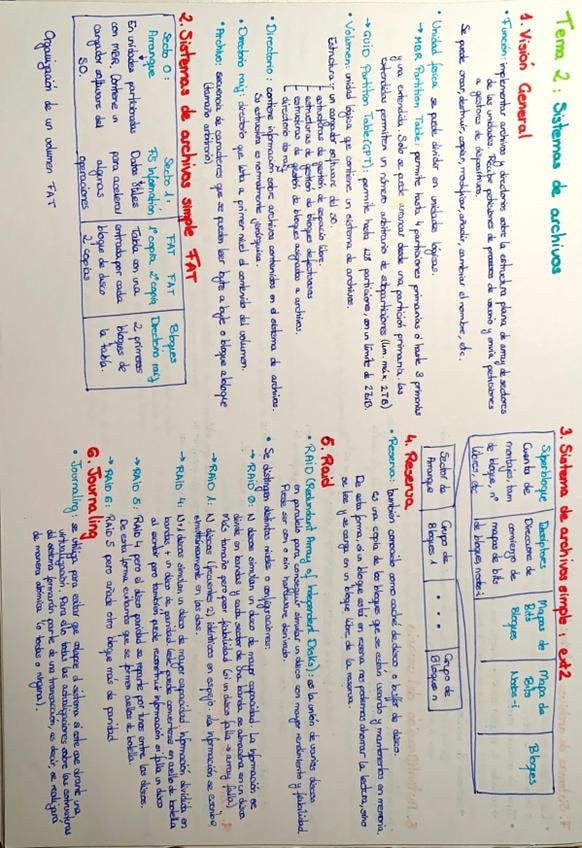 Tema 2: Sistemas de archivos
1. Visión General
• Función: implementar archivos y directorios sobre la estructura plana de array de sectores
de las unidades. Recibe peticiones de procesos de usuario y envía peticiones
a gestores de dispositivos.
Se puede crear, destruir, copiar, modificar, añadir, cambiar el nombre, etc.
• Unidad física se puede dividir en unidades lógicas.
→ MBR Partition Table: permite hasta 4 particiones primarias o hasta 3 primarias
y una extendida. Solo se puede arrancar desde una partición primaria. Las
extendidas permiten un número arbitrario de subparticiones (lím. máx. 2TB)
→ GUID Partition Table (GPT): permite hasta 128 particiones, con un límite de 2 ZiB.
• Volumen: unidad lógica que contiene un sistema de archivos.
Estructura: un cargador software del SO.
estructuras de gestión de espacio libre.
estructuras de gestión de bloques defectuosos
estructuras de gestión de bloques asignados a archivos.
directorio raíz
• Directorio: contiene información sobre archivos contenidos en el sistema de archivos.
Su estructura es normalmente jerárquica.
• Directorio raíz: directorio que lista a primer nivel el contenido del volumen.
• Archivo: secuencia de caracteres que se pueden leer byte a byte o bloque a bloque
(tamaño arbitrario).
2. Sistemas de archivos simple FAT
Sector 0: Arranque
En unidades particionadas
con MBR. Contiene un
cargador software del
SO.
Sector 1:
FS Information
Datos útiles
para acelerar
algunas
operaciones
FAT FAT
1ª copia 2ª copia
Tabla con una
entrada por cada
bloque de disco
2 copias
Bloques
Directorio raíz
2 primeros
bloques de
la tabla.
Organización de un volumen FAT
3. Sistema de archivos simple: ext2
Superbloque
Cuenta de
montajes, tam
de bloque, nº
libres, etc
Descriptores
Direcciones de
comienzo de
mapas de bits
de bloques, nodos-i
Mapas de
Bits
Bloques
Mapa de
Bits
Nodos-i
Bloques
Sector de
Arranque
Grupo de
Bloques 1
. . .
Grupo de
Bloques n
4. Reserva
• Reserva: también conocido como cachés de disco o buffer de disco.
es una copia de los bloques que se están usando y mantenemos en memoria.
De esta forma, si un bloque está en reserva nos podemos ahorrar la lectura, sino
se lee y se carga en un bloque libre de la reserva.
5. Raid
• RAID (Redundant Array of Independent Disks): es la unión de varios discos
en paralelo para conseguir simular un disco con mayor rendimiento y fiabilidad.
Puede ser con o sin hardware dedicado
• Se distinguen distintos niveles o configuraciones:
→ RAID 0: N discos simulan un disco de mayor capacidad. La información se
divide en bandas y cada sector de una banda se almacena en un disco
Más tamaño pero menor fiabilidad (si un disco falla → array falla)
→ RAID 1: N discos (frecuente 2) idénticos en espejo. La información se escribe
simultáneamente en los discos.
→ RAID 4: N+1 discos simulan un disco de mayor capacidad. Información dividida en
bandas + un disco de paridad. puede convertirse en cuello de botella
al escribir pero también puede reconstruir información si falla un disco
→ RAID 5: RAID 4 pero el disco paridad se reparte por turno entre los discos.
De esta forma evitamos que se formen cuellos de botella.
→ RAID 6: RAID 5 pero añade otro bloque más de paridad
6. Journaling
• Journaling: se utiliza para evitar que colapse el sistema si este cae durante una
actualización. Para ello todas las actualizaciones sobre las estructuras
del sistema formarán parte de una transacción, es decir, se realizará
de manera atómica (o todas o ninguna).